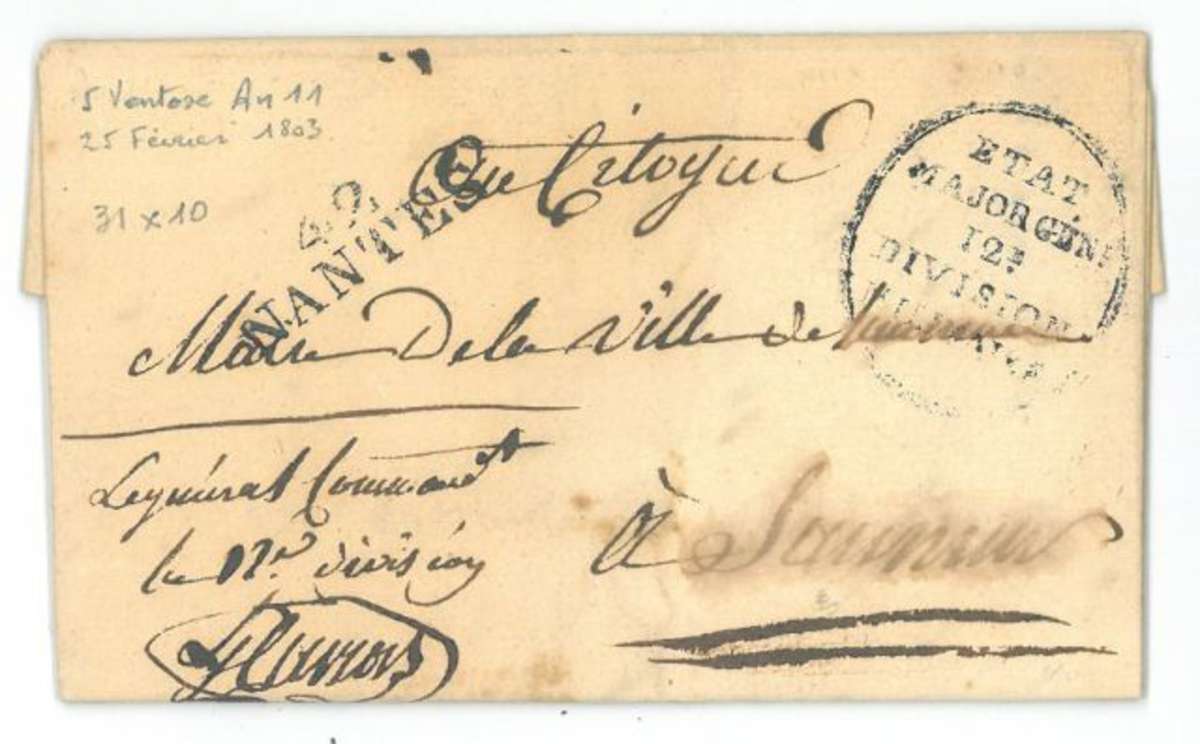 5 Ventose An 11
25 Février 1803
31 x 10
42
NANTES
Au Citoyen
Maire De la Ville de
ETAT
MAJOR GÉN.
12e
DIVISION
Le général Command.t
la 12e division
à Saumur